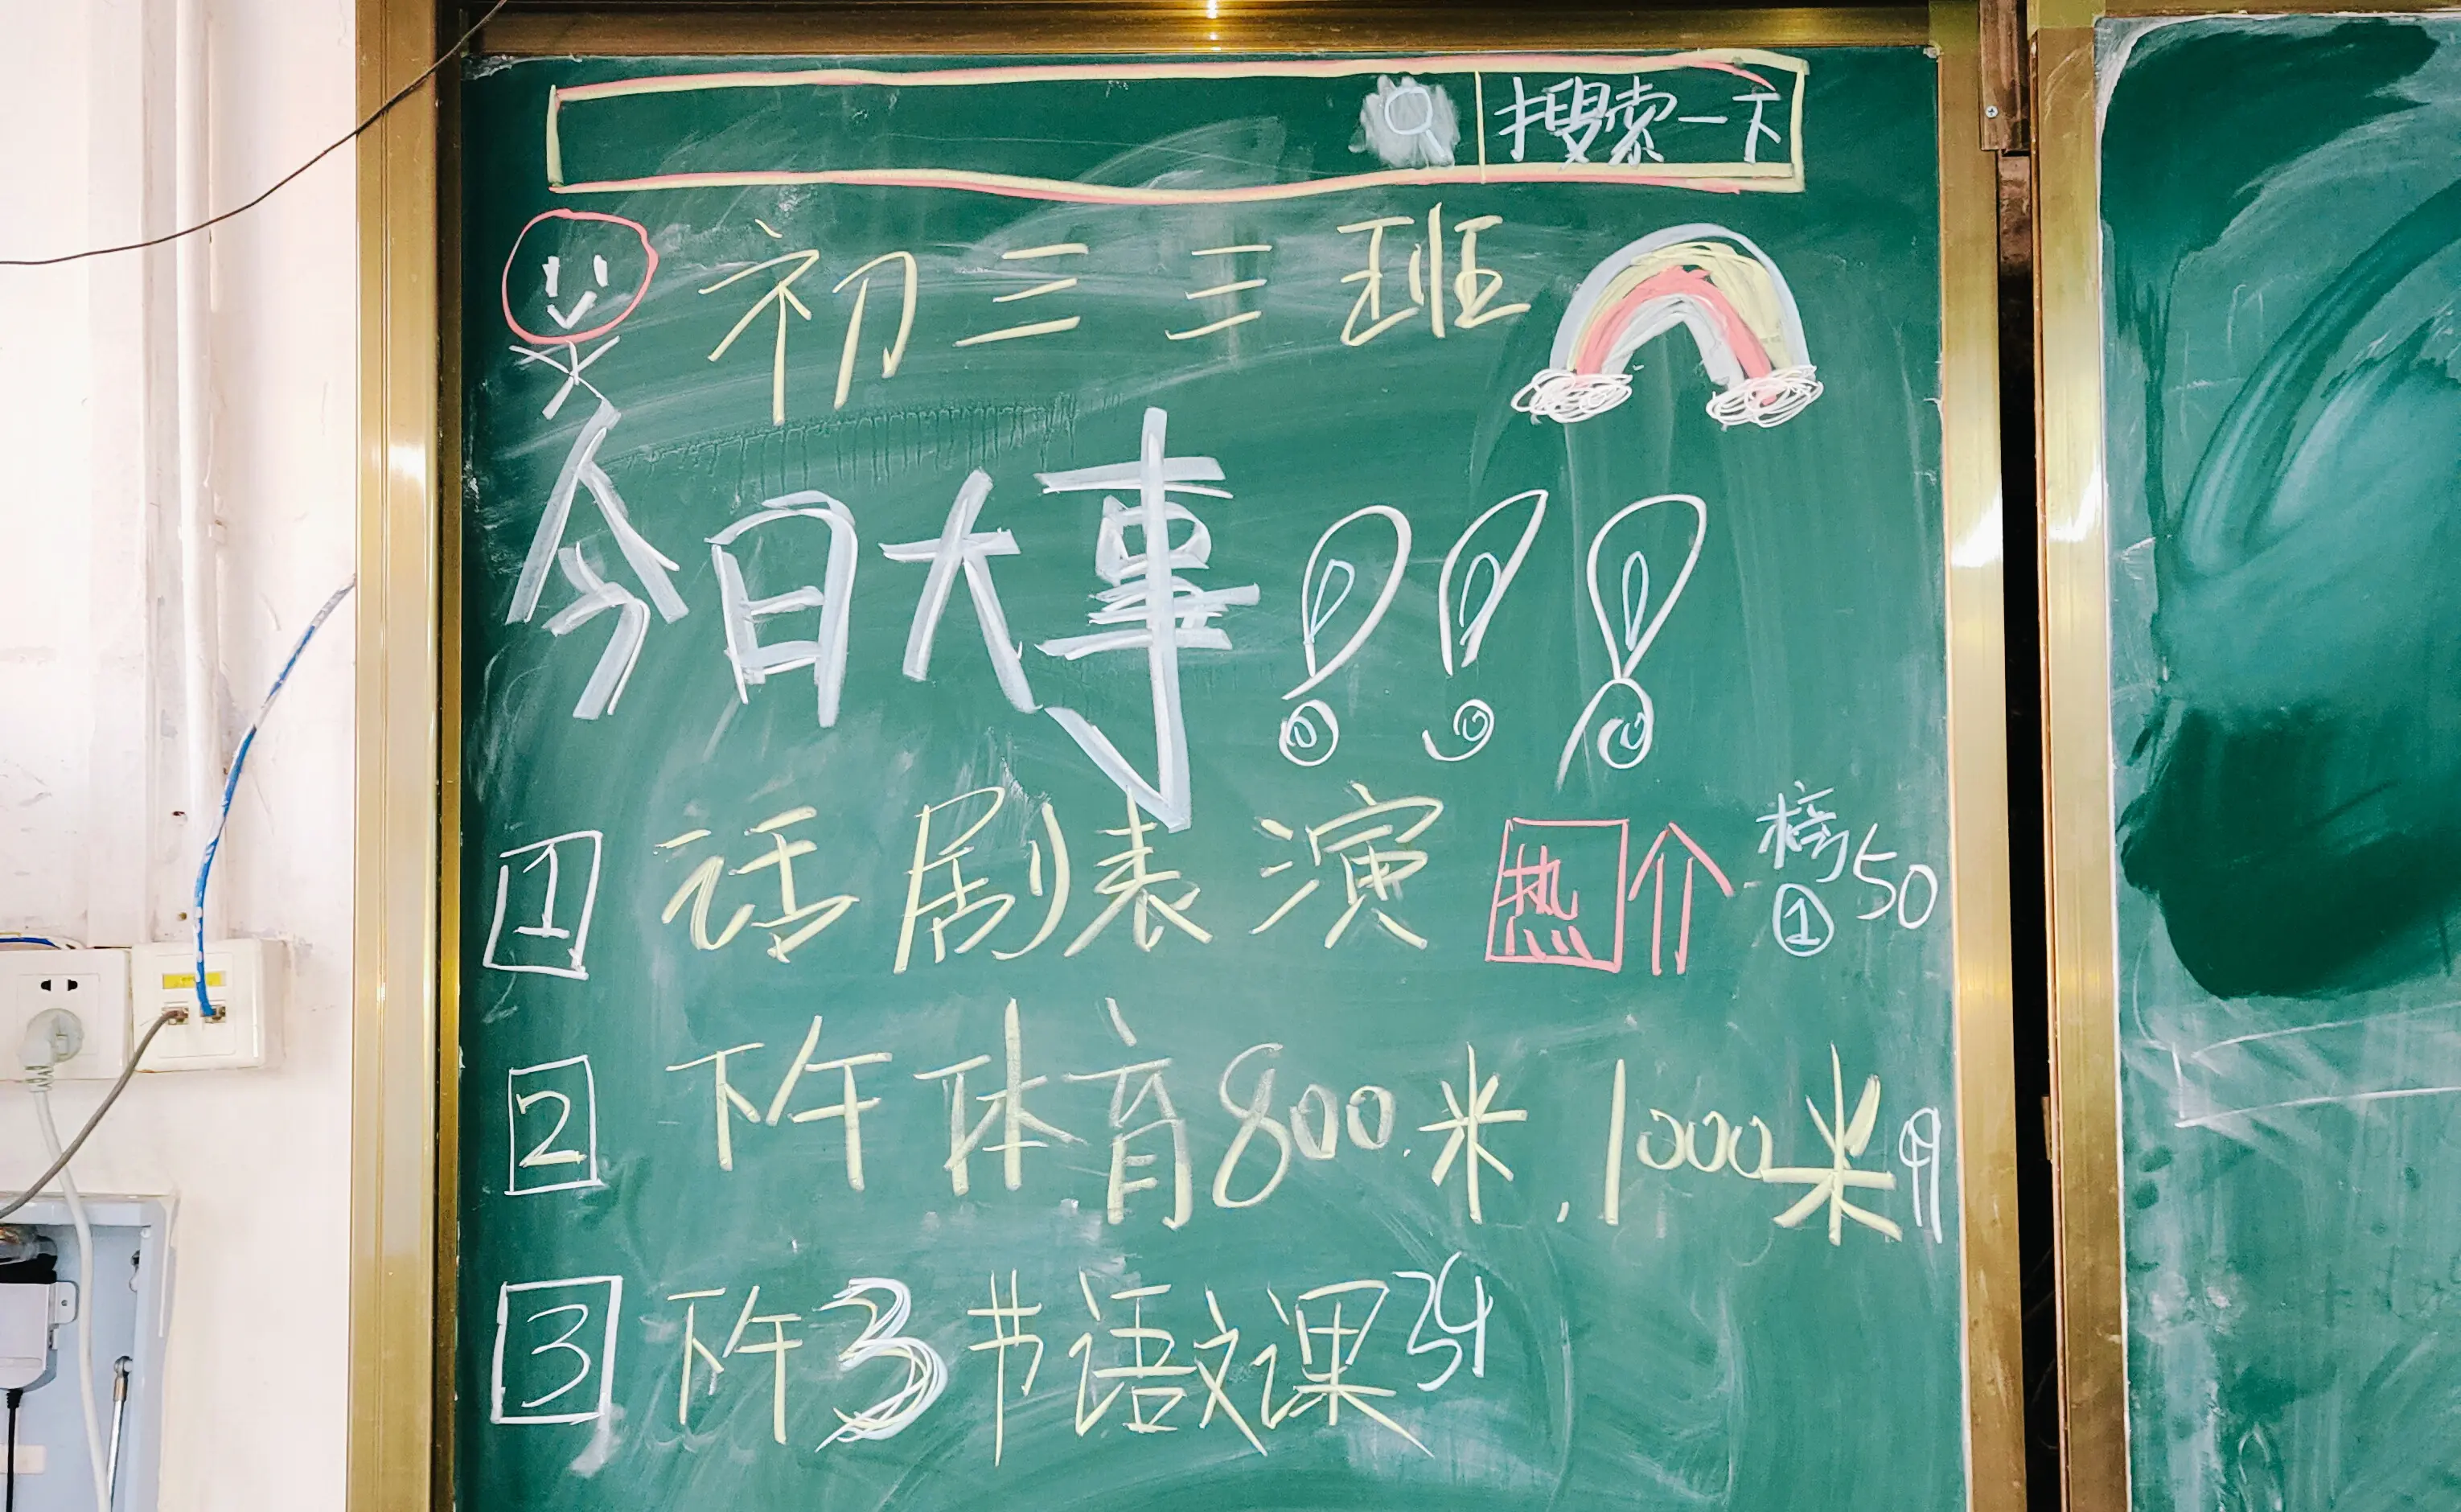 搜索一下
初三三班
今日大事!!!
1 话剧表演 热个 榜① 50
2 下午体育800米,1000米 9
3 下午3节语文课 34